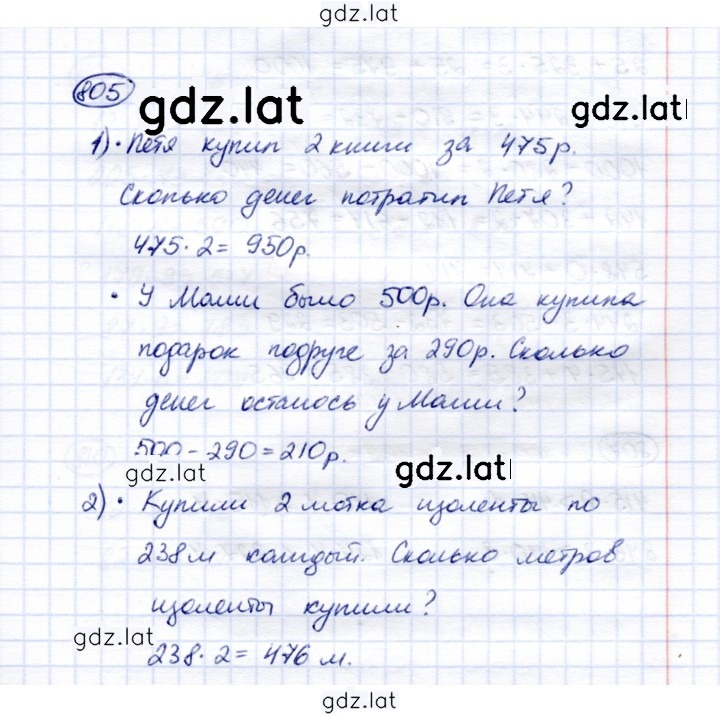 gdz.lat
805
gdz.lat
gdz.lat
1) · Петя купил 2 книги за 475р.
Сколько денег потратил Петя?
475 · 2 = 950р.
· У Маши было 500р. Она купила
подарок подруге за 290р. Сколько
денег осталось у Маши?
500 - 290 = 210р.
gdz.lat
gdz.lat
2) · Купили 2 мотка изоленты по
238м каждый. Сколько метров
изоленты купили?
gdz.lat
238 · 2 = 476 м.
gdz.lat